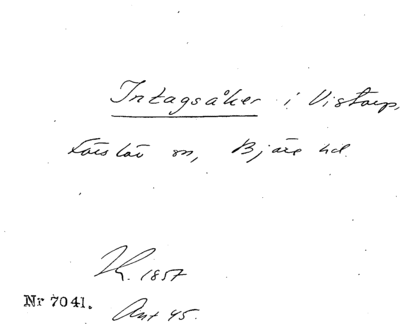 Intagsåker i Vistorp,
Förslöv sn, Bjäre hd.
Lh. 1857
Nr 7041.
Ant 45.